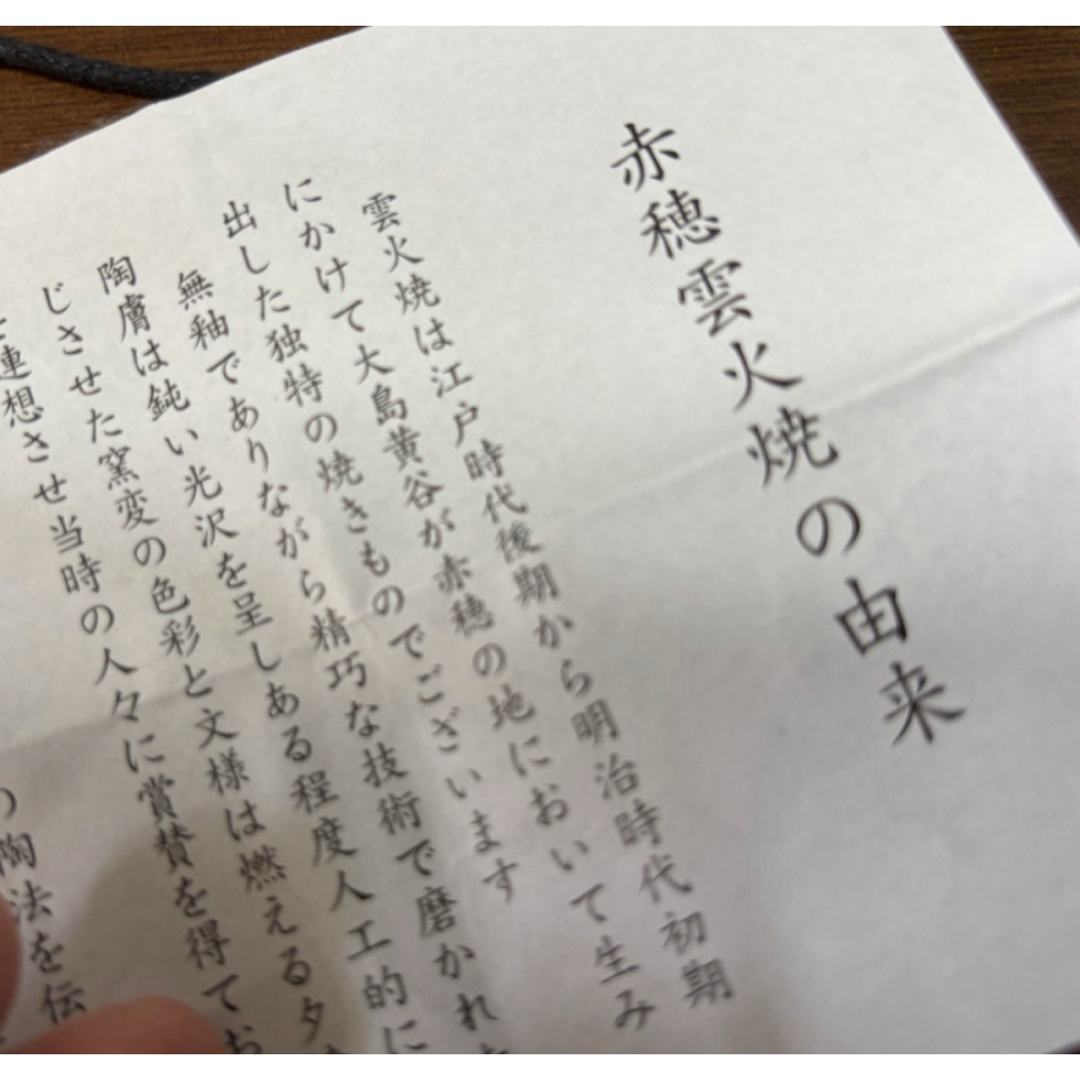 赤穂雲火焼の由来
雲火焼は江戸時代後期から明治時代初期
にかけて大島黄谷が赤穂の地において生み
出した独特の焼きものでございます
無釉でありながら精巧な技術で磨かれ
陶膚は鈍い光沢を呈しある程度人工的に
じさせた窯変の色彩と文様は燃える夕
連想させ当時の人々に賞賛を得てお
の陶法を伝